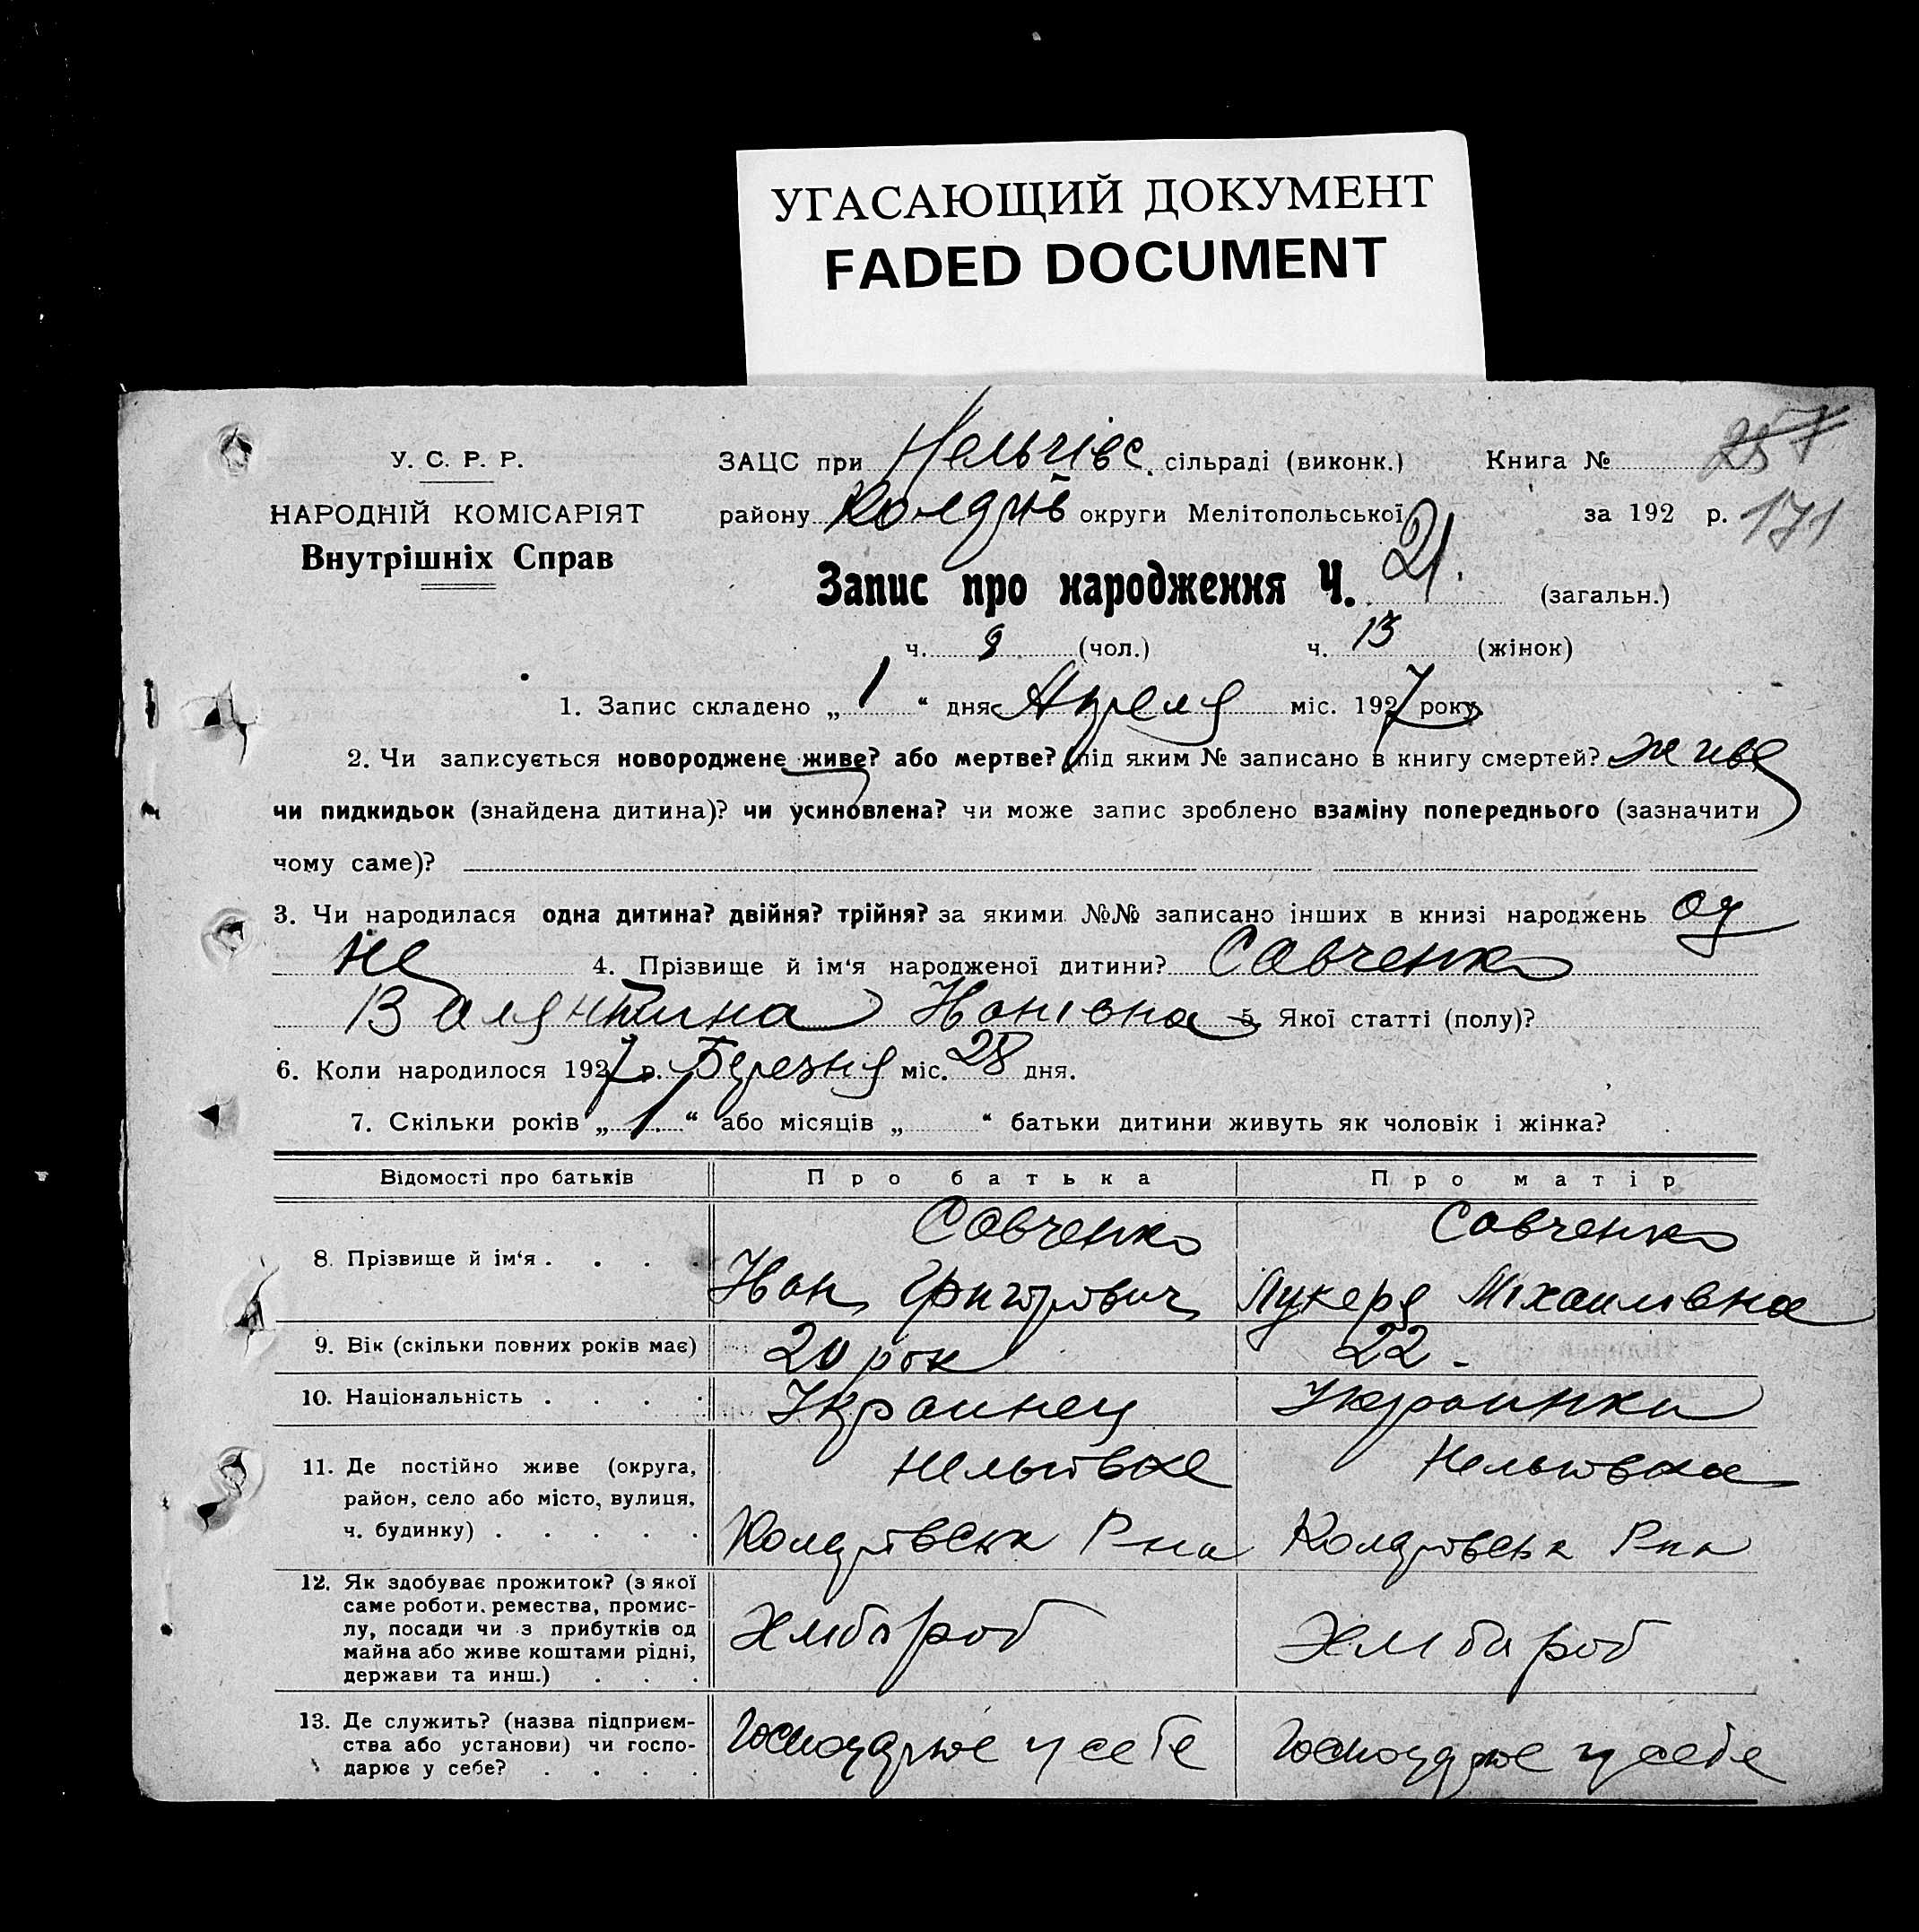 УГАСАЮЩИЙ ДОКУМЕНТ
FADED DOCUMENT
У. С. Р. Р.
НАРОДНІЙ КОМІСАРІЯТ
Внутрішніх Справ
ЗАЦС при Нельгівс. сільраді (виконк.) Книга № 257
району округи Мелітопольської за 192 р. 171
Запис про народження Ч. 21. (загальн.)
ч. 9 (чол.) ч. 13 (жінок)
1. Запис складено „ 1 “ дня Апреля міс. 1927 року
2. Чи записується новороджене живе? або мертве? (під яким № записано в книгу смертей? живе
чи пидкидьок (знайдена дитина)? чи усиновлена? чи може запис зроблено взаміну попереднього (зазначити
чому саме)?
3. Чи народилася одна дитина? двійня? трійня? за якими №№ записано інших в книзі народжень од
не 4. Прізвище й ім'я народженої дитини? Савченко
Валянтина Іванівна 5. Якої статті (полу)?
6. Коли народилося 1927 р. Березня міс. 28 дня.
7. Скільки років „ 1. “ або місяців „ “ батьки дитини живуть як чоловік і жінка?
Відомості про батьків Про батька Про матір
8. Прізвище й ім'я . . . . Савченко Савченко
Іван Григорович Лукеря Міхайлівна
9. Вік (скільки повних років має) 20 рок 22 -
10. Національність . . . . Украинец Украинка
11. Де постійно живе (округа,
район, село або місто, вулиця,
ч. будинку) . . . . .
Р-на
12. Як здобуває прожиток? (з якої
саме роботи, ремества, промис-
лу, посади чи з прибутків од
майна або живе коштами рідні,
держави та инш.) . . .
Хлібороб Хлібороб
13. Де служить? (назва підприєм-
ства або установи) чи госпо-
дарює у себе? . . . .
Господарює у себе Господарює у себе